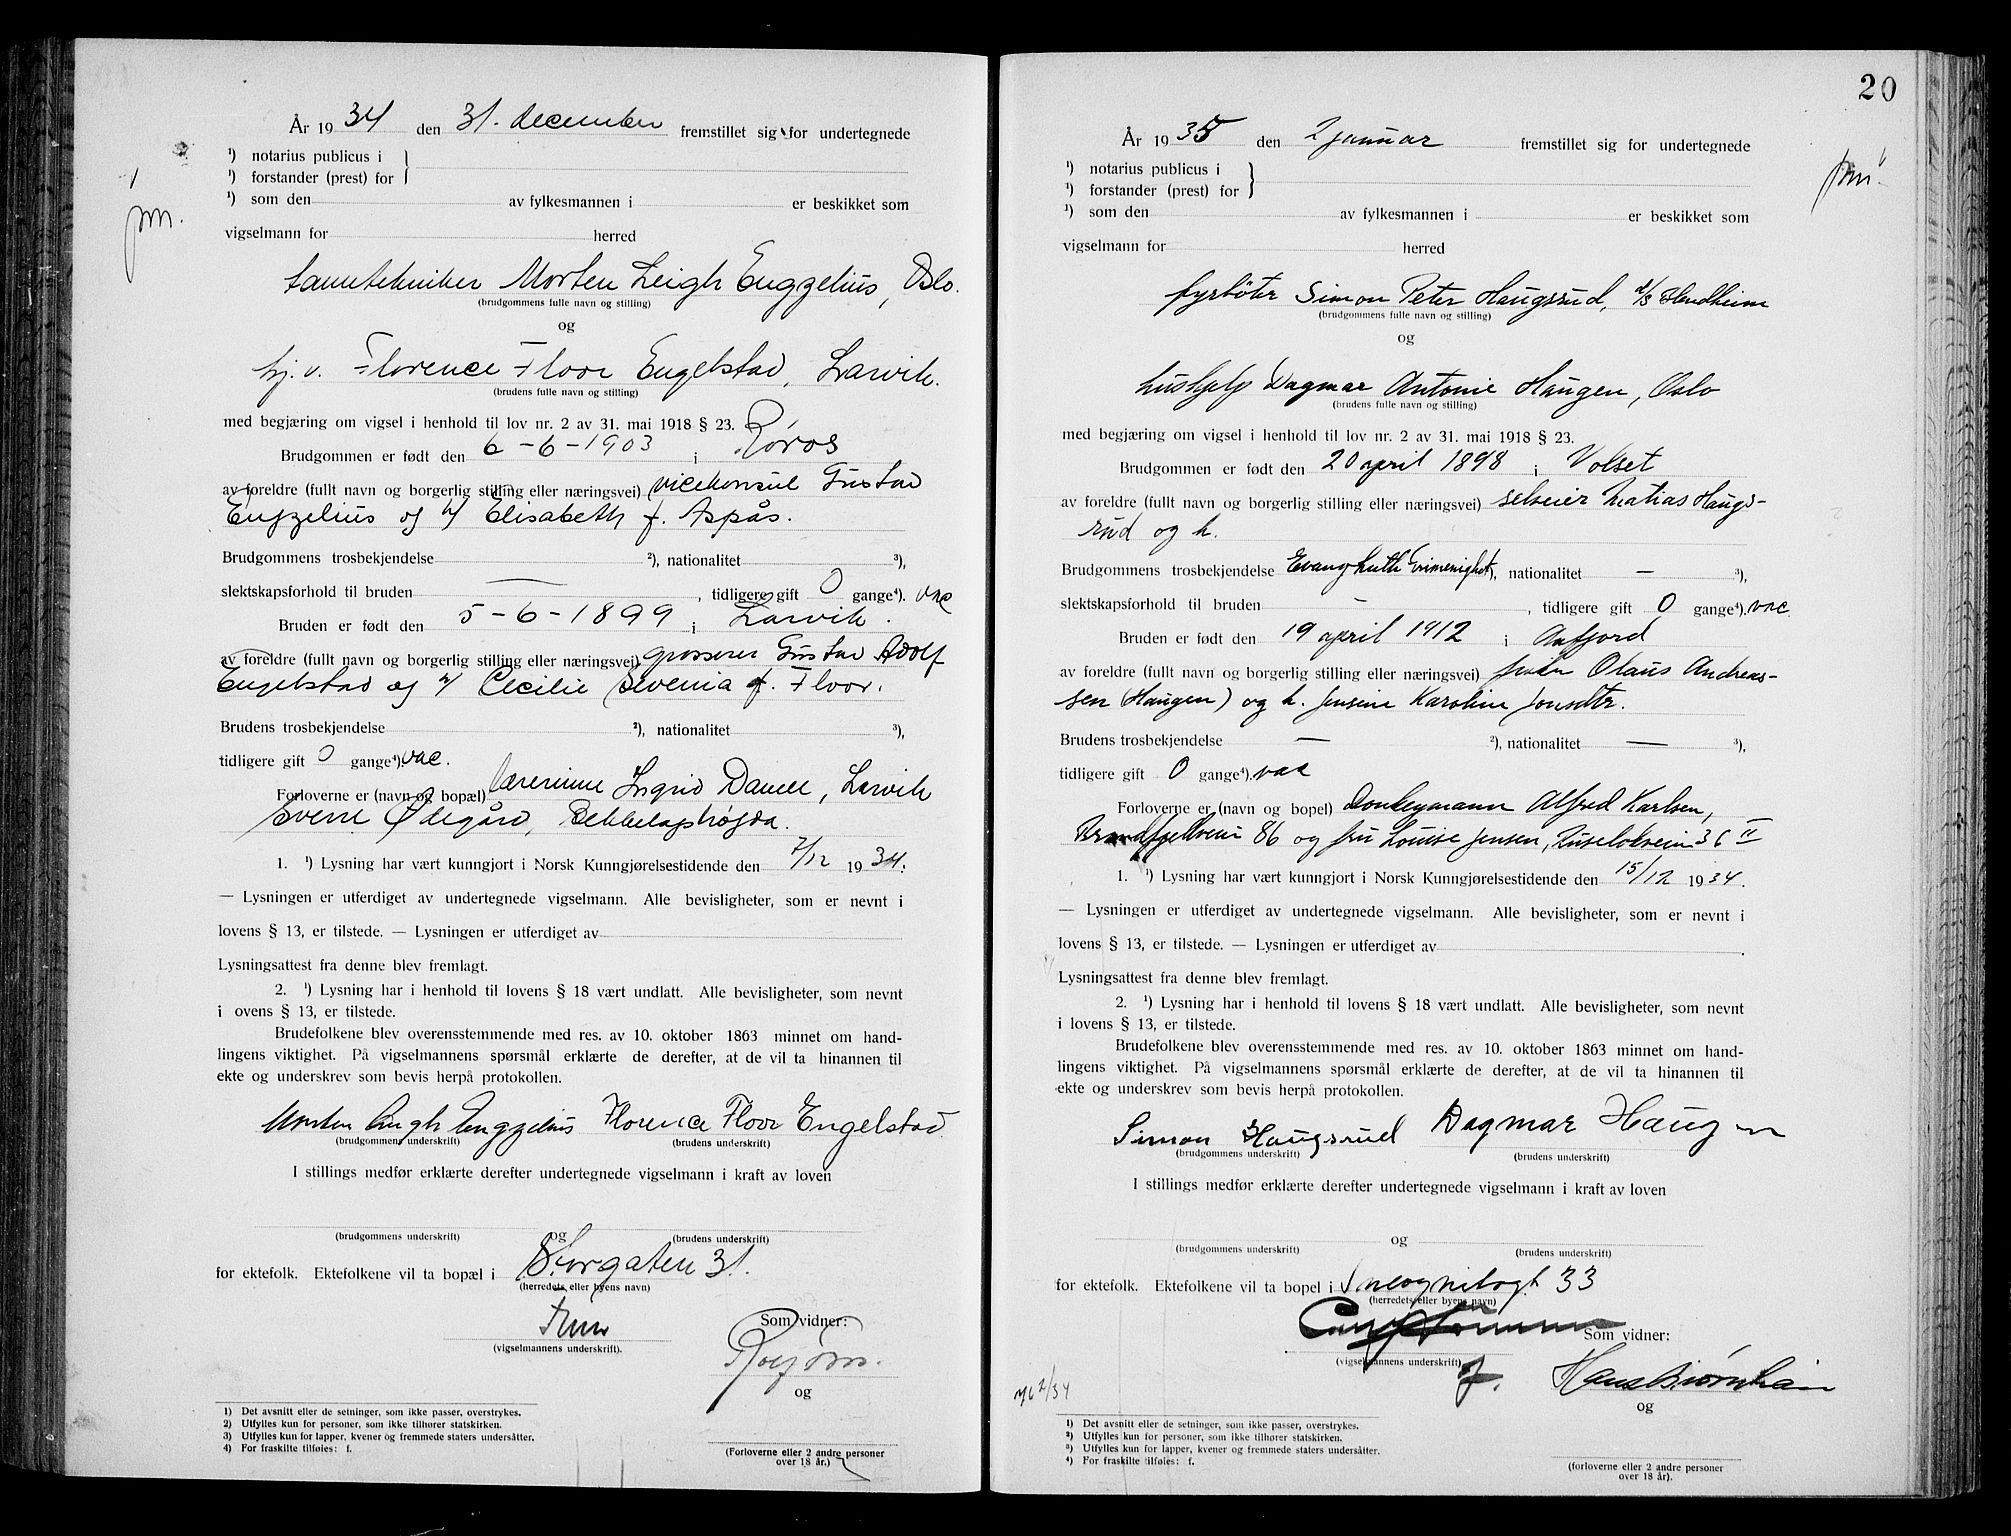 År 1934 den 31. december fremstillet sig for undertegnede
¹) notarius publicus i
¹) forstander (prest) for
¹) som den av fylkesmannen i er beskikket som
vigselmann for herred
pm.
tanntekniker Morten Leigh Engzelius, Oslo.
(brudgommens fulle navn og stilling)
og
hj.v. Florence Floor Engelstad, Larvik.
(brudens fulle navn og stilling)
med begjæring om vigsel i henhold til lov nr. 2 av 31. mai 1918 § 23.
Brudgommen er født den 6-6-1903 i Røros
av foreldre (fullt navn og borgerlig stilling eller næringsvei) vicekonsul Gustav
Engzelius og h/ Elisabeth f. Aspås.
Brudgommens trosbekjendelse ²), nationalitet ³),
slektskapsforhold til bruden — , tidligere gift 0 gange⁴). vac
Bruden er født den 5-6-1899 i Larvik.
av foreldre (fullt navn og borgerlig stilling eller næringsvei) grosserer Gustav Adolf
Engelstad og h/ Cecilie Severia f. Floor.
Brudens trosbekjendelse ²), nationalitet ³),
tidligere gift 0 gange⁴). vac.
Forloverne er (navn og bopæl) lærerinne Ingrid Danee, Larvik
Sverre Ødegård, Bekkelagshøgda.
1. ¹) Lysning har vært kunngjort i Norsk Kunngjørelsestidende den 7/12 1934.
— Lysningen er utferdiget av undertegnede vigselmann. Alle bevisligheter, som er nevnt i
lovens § 13, er tilstede. — Lysningen er utferdiget av
Lysningsattest fra denne blev fremlagt.
2. ¹) Lysning har i henhold til lovens § 18 vært undlatt. Alle bevisligheter, som nevnt
i ovens § 13, er tilstede.
Brudefolkene blev overensstemmende med res. av 10. oktober 1863 minnet om hand-
lingens viktighet. På vigselmannens spørsmål erklærte de derefter, at de vil ta hinannen til
ekte og underskrev som bevis herpå protokollen.
Morten Leigh Engzelius Florence Floor Engelstad
(brudgommens underskrift) (brudens underskrift)
I stillings medfør erklærte derefter undertegnede vigselmann i kraft av loven
og
(brudgommens underskrift) (brudens underskrift)
for ektefolk. Ektefolkene vil ta bopæl i Storgaten 31.
(herredets eller byens navn)
Som vidner:
(vigselmannens underskrift).
og
1) Det avsnitt eller de setninger, som ikke passer, overstrykes.
2) Utfylles kun for personer, som ikke tilhører statskirken.
3) Utfylles kun for lapper, kvener og fremmede staters undersåtter.
4) For fraskilte tilføies: f.
(Forloverne eller 2 andre personer
over 18 år.)
20
År 1935 den 2 januar fremstillet sig for undertegnede
¹) notarius publicus i
¹) forstander (prest) for
¹) som den av fylkesmannen i er beskikket som
vigselmann for herred
pm.
fyrbøter Simon Peter Haugsrud, d/s Hendheim
(brudgommens fulle navn og stilling)
og
hushjelp Dagmar Antonie Haugen, Oslo
(brudens fulle navn og stilling)
med begjæring om vigsel i henhold til lov nr. 2 av 31. mai 1918 § 23.
Brudgommen er født den 20 april 1898 i Volset
av foreldre (fullt navn og borgerlig stilling eller næringsvei) selveier Matias Haugs-
rud og h.
Brudgommens trosbekjendelse Evang Luth Frimenighet ²), nationalitet — ³),
slektskapsforhold til bruden — , tidligere gift 0 gange⁴). vac
Bruden er født den 19 april 1912 i Aafjord
av foreldre (fullt navn og borgerlig stilling eller næringsvei) Olaus Andreas-
sen (Haugen) og h. Jensine Karoline Jonsdtr.
Brudens trosbekjendelse — ²), nationalitet — ³),
tidligere gift 0 gange⁴). vac
Forloverne er (navn og bopel) Donkeymann Alfred Karlsen,
86 og fru Louise Jensen, Ruseløkveien 36 II
1. ¹) Lysning har vært kunngjort i Norsk Kunngjørelsestidende den 15/12 1934.
— Lysningen er utferdiget av undertegnede vigselmann. Alle bevisligheter, som er nevnt i
lovens § 13, er tilstede. — Lysningen er utferdiget av
Lysningsattest fra denne blev fremlagt.
2. ¹) Lysning har i henhold til lovens § 18 vært undlatt. Alle bevisligheter, som nevnt
i lovens § 13, er tilstede.
Brudefolkene blev overensstemmende med res. av 10. oktober 1863 minnet om hand-
lingens viktighet. På vigselmannens spørsmål erklærte de derefter, at de vil ta hinannen til
ekte og underskrev som bevis herpå protokollen.
Simon Haugsrud Dagmar Haugen
(brudgommens underskrift) (brudens underskrift)
I stillings medfør erklærte derefter undertegnede vigselmann i kraft av loven
og
(brudgommens underskrift) (brudens underskrift)
for ektefolk. Ektefolkene vil ta bopel i Incognitogt 33
(herredets eller byens navn)
Som vidner:
(vigselmannens underskrift)
f.
Hans Bjørnhein
og
¹) Det avsnitt eller de setninger, som ikke passer, overstrykes.
²) Utfylles kun for personer, som ikke tilhører statskirken.
³) Utfylles kun for lapper, kvener og fremmede staters undersåtter.
⁴) For fraskilte tilføies: f.
(forloverne eller 2 andre personer
over 18 år).